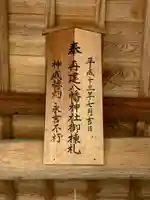 平成十三年七月吉日
奉 再建八幡神社御棟札
神威赫灼 永吉不朽